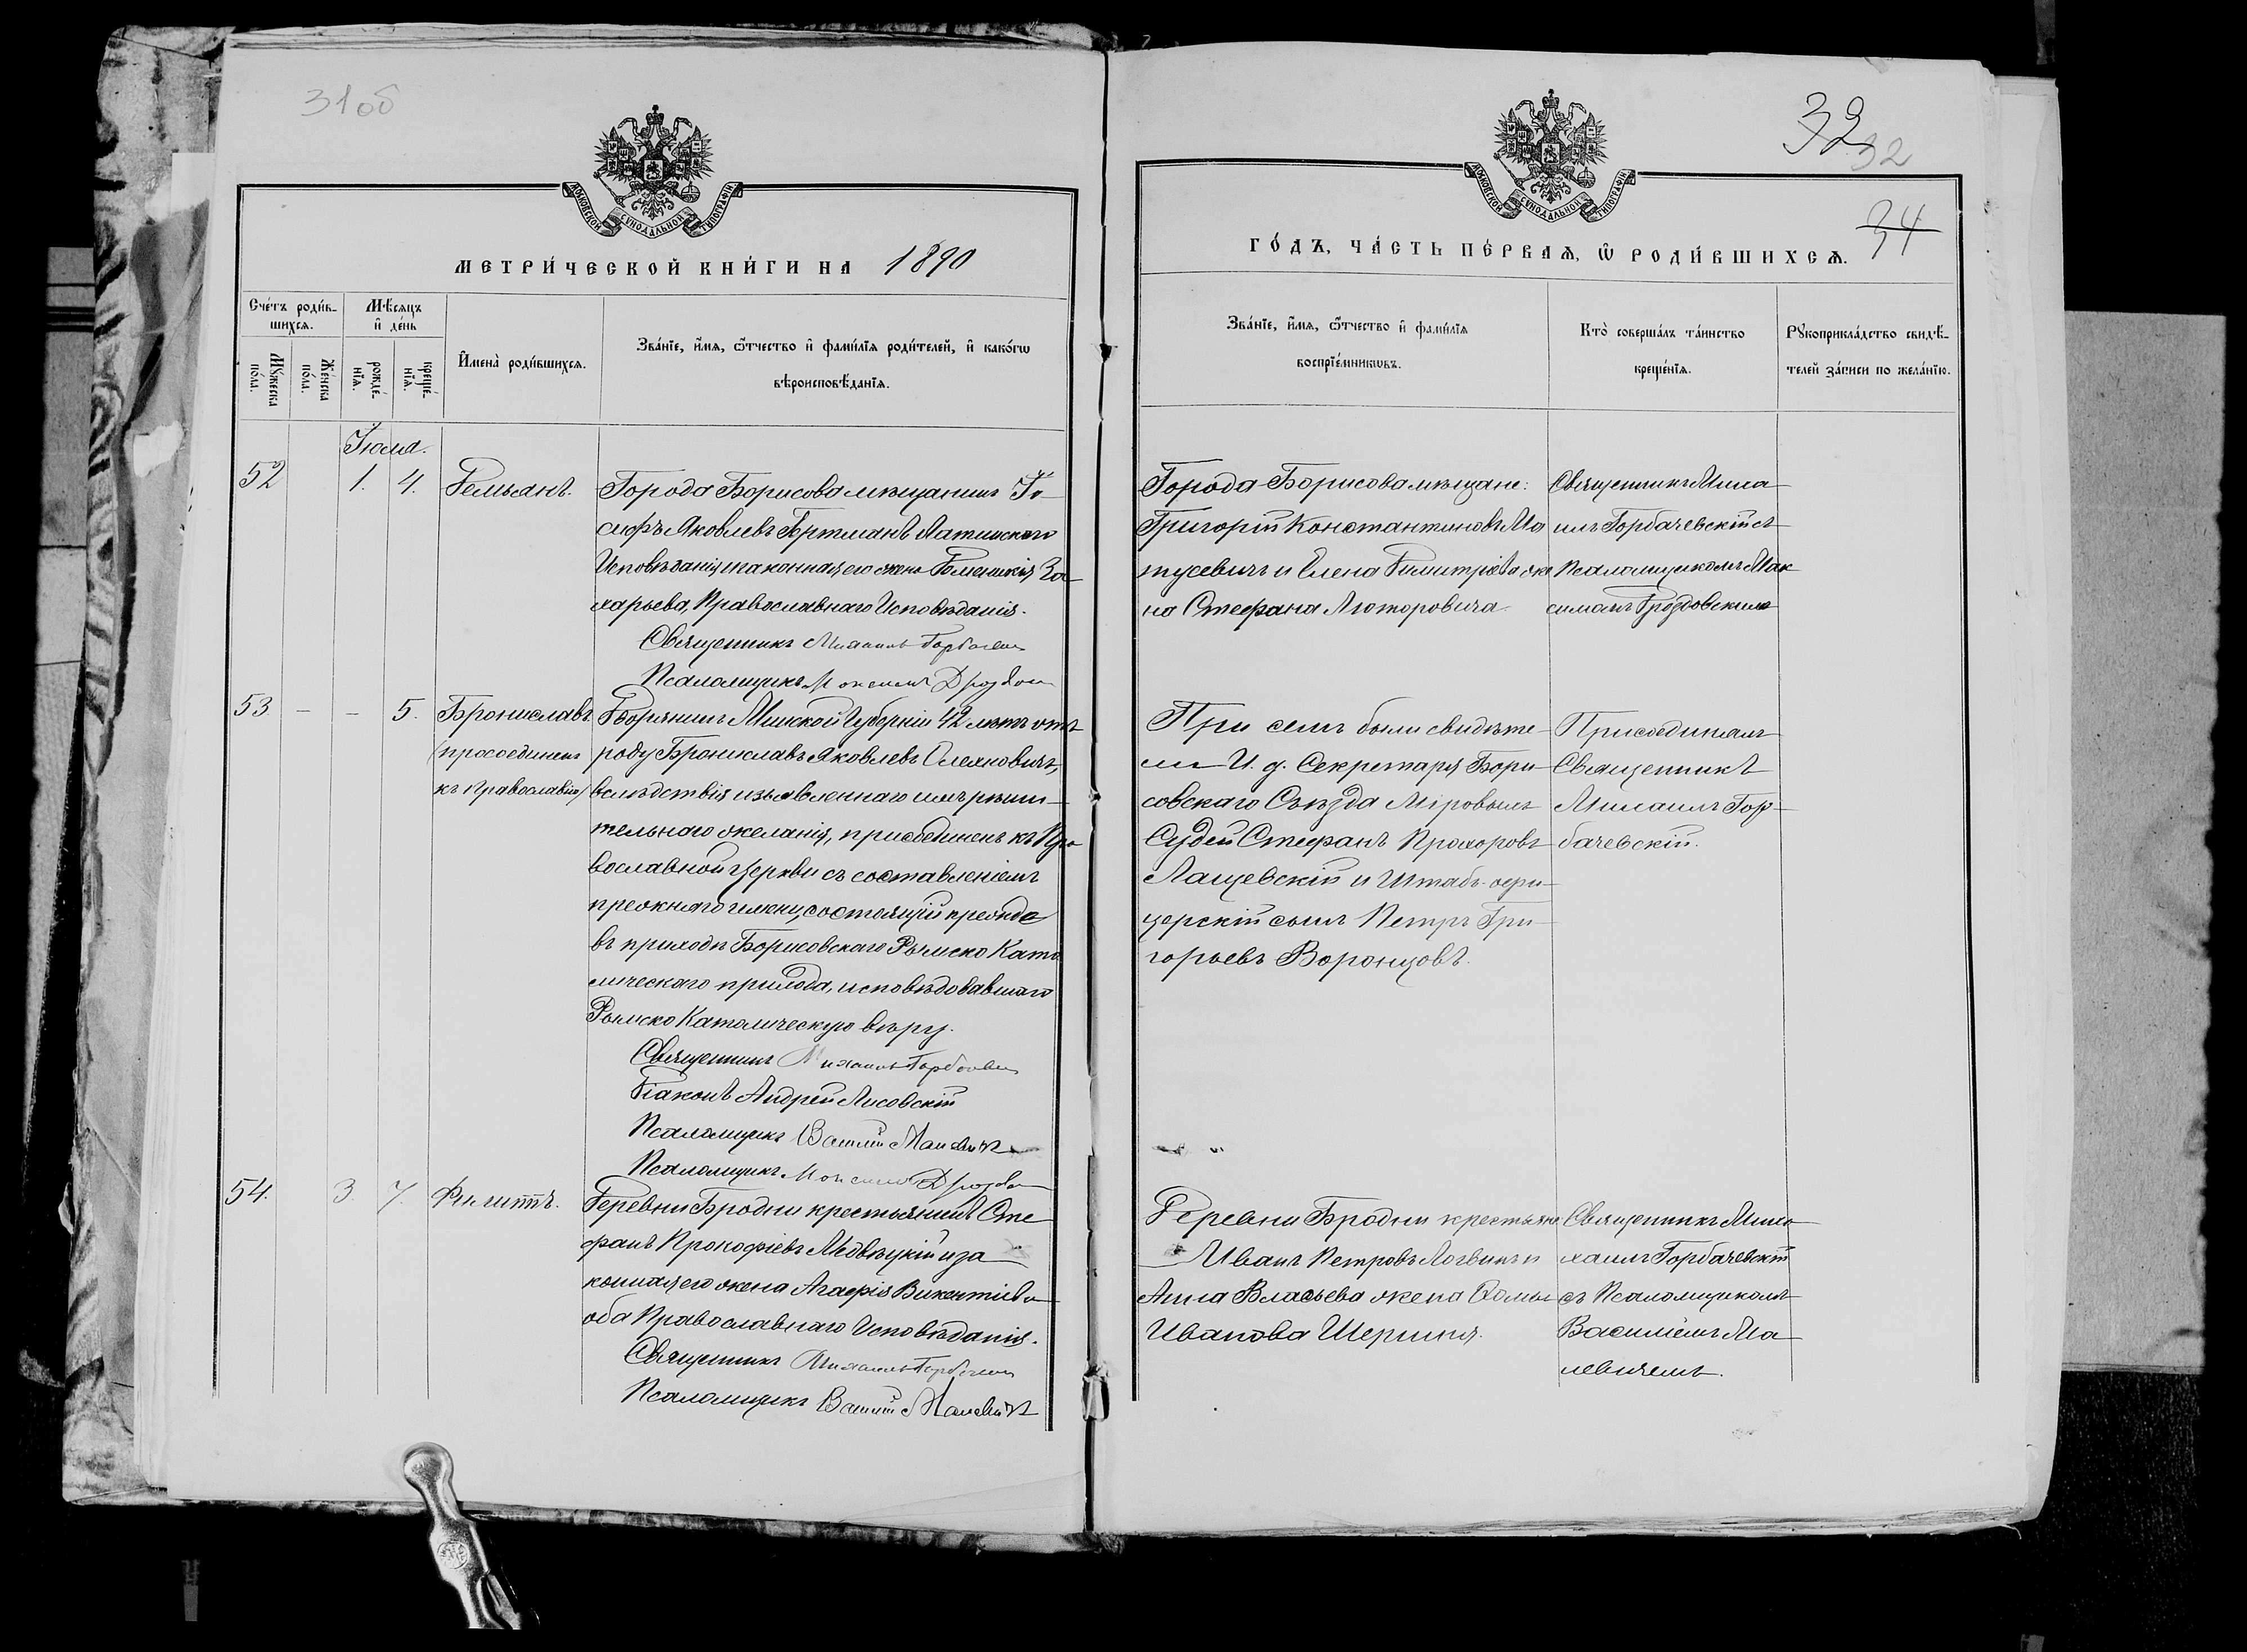 31об
МОСКОВСКОЙ СѴНОДАЛЬНОЙ ТИПОГРАФІИ
МЕТРИ́ЧЕСКОЙ КНИ́ГИ НА 1890
Сче́тъ роди́в-
шихсѧ.
Мѣ́сѧцъ
и҆ де́нь
Мꙋ́жеска
по́ла.
Же́нска
по́ла.
рожде́-
нїѧ.
креще́-
нїѧ.
И҆мена̀ роди́вшихсѧ.
Зва́нїе, и҆́мѧ, ѻ҆́тчество и҆ фами́лїѧ роди́телей, и҆ како́гѡ
вѣроисповѣ́данїѧ.
Іюля.
52 1. 4. Демьянъ.
Города Борисова мѣщанинъ Іо-
сифъ Яковлевъ Латинскаго
Исповѣданія и законная его жена За-
харьева, Православнаго Исповѣданія.
Священникъ Михаилъ Горбачевск
Псаломщикъ Максимъ Дроздов
53. – – 5. Брониславъ
(присоединенъ
къ Православію)
Дворянинъ Минской Губерніи 42 лѣтъ отъ
роду Брониславъ Яковлевъ Олехновичъ,
вслѣдствія изъявленнаго имъ рѣши-
тельнаго желанія, присоединенъ къ Пра
вославной Церкви съ оставленіемъ
прежняго имени, состоящій прежде
въ приходѣ Борисовскаго Рымско Като
лическаго прихода, исповѣдовавшаго
Рымско Католическую вѣру.
Священникъ Михаилъ Горбачевск
Діаконъ Андрей Лисовскій
Псаломщикъ Василій Малевичъ
Псаломщикъ Максимъ Дроздов
54. 3. 7. Филиппъ.
Деревни Бродни крестьянинъ Сте
фанъ Прокофіевъ Медвѣцкій и за
конная его жена Агафія Викентіева
оба Православнаго Исповѣданія.
Священникъ Михаилъ Горбачевск
Псаломщикъ Василій Малевичъ
32
32
34
МОСКОВСКОЙ СѴНОДАЛЬНОЙ ТИПОГРАФІИ
ГО́ДЪ, ЧА́СТЬ ПЕ́РВАѦ, Ѡ҆ РОДИ́ВШИХСѦ.
Зва́нїе, и҆́мѧ, ѻ҆́тчество и҆ фами́лїѧ
воспрїе́мникѡвъ.
Кто̀ соверша́лъ та́инство
креще́нїѧ.
Рꙋкоприкла́дство свидѣ́-
телей за́писи по жела́нїю.
Города Борисова мѣщане:
Григорій Константиновъ Ма
тусевичъ и Елена Димитріева же
на Стефана Лютаровича
Священникъ Миха
илъ Горбачевскій съ
Псаломщикомъ Мак
симомъ Дроздовскимъ
При семъ были свидѣте-
ли И. д. Секретаря Бори-
совскаго Съѣзда Міровыхъ
Судей Стефанъ Прохоровъ
Лащевскій и Штабъ-офи-
церскій сынъ Петръ Гри-
горьевъ Воронцовъ.
Присоединялъ
Священникъ
Михаилъ Гор-
бачевскій.
Деревни Бродни крестьяне
Иванъ Петровъ Логвинъ и
Анна Власьева жена Фомы
Иванова Шершня.
Священникъ Ми
хаилъ Горбачевскій
съ Псаломщикомъ
Василіемъ Ма-
левичемъ.